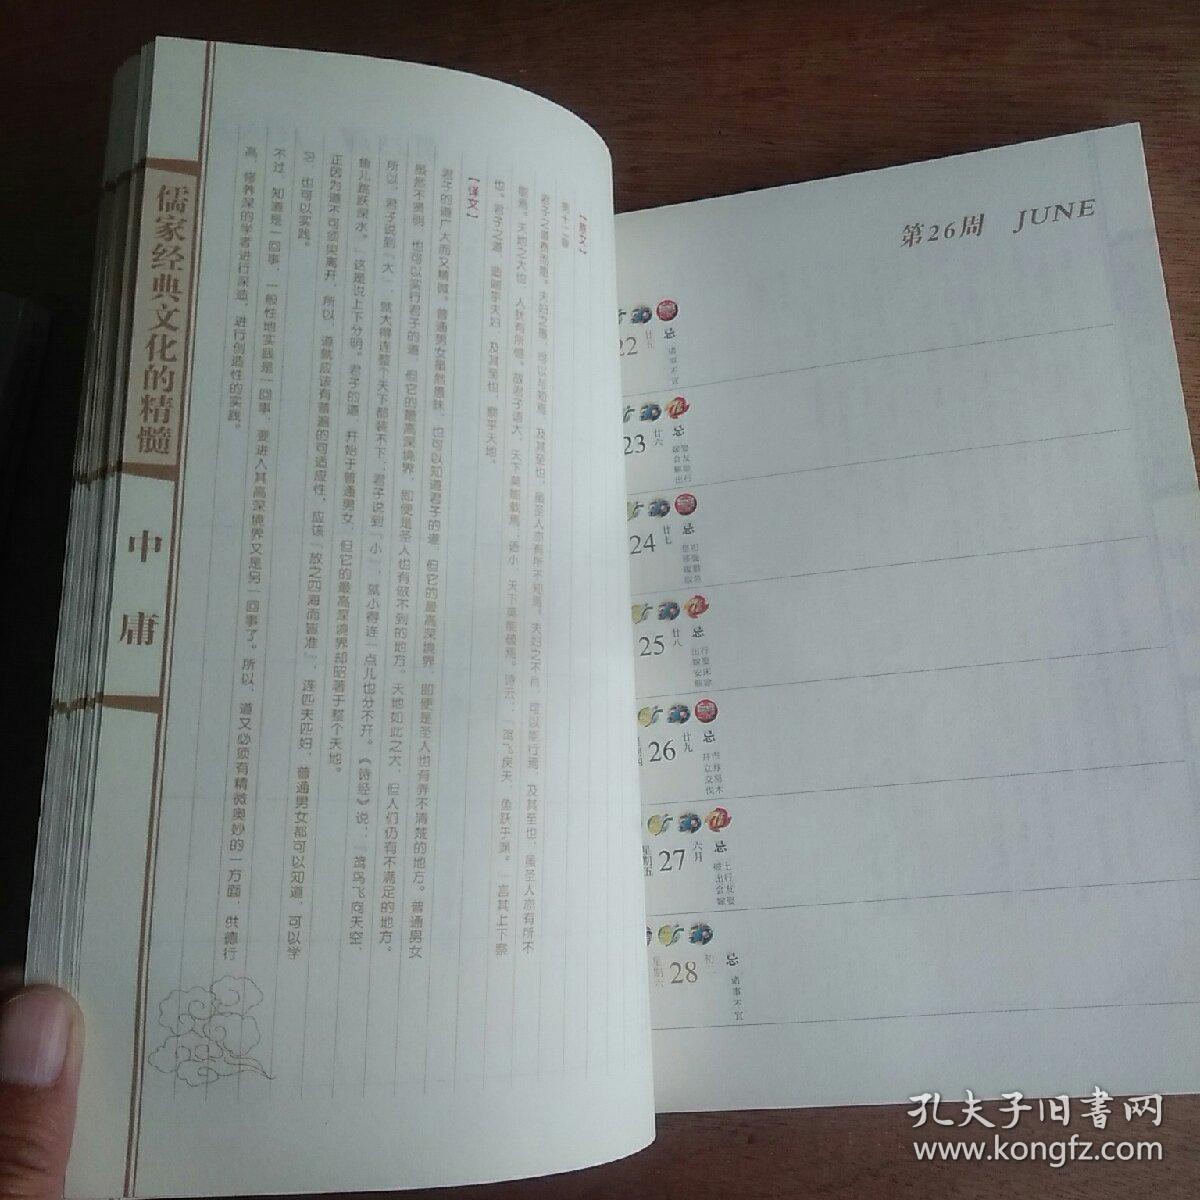 儒家经典文化的精髓
中庸
【原文】
第十二章
君子之道费而隐。夫妇之愚，可以与知焉，及其至也，虽圣人亦有所不知焉。夫妇之不肖，可以能行焉，及其至也，虽圣人亦有所不
能焉。天地之大也，人犹有所憾。故君子语大，天下莫能载焉；语小，天下莫能破焉。诗云：『鸢飞戾天，鱼跃于渊。』言其上下察
也。君子之道，造端乎夫妇，及其至也，察乎天地。
【译文】
君子的道广大而又精微。普通男女虽然愚昧，也可以知道君子的道，但它的最高深境界，即便是圣人也有弄不清楚的地方。普通男女
虽然不贤明，也可以实行君子的道，但它的最高深境界，即便是圣人也有做不到的地方。天地如此之大，但人们仍有不满足的地方。
所以，君子说到『大』，就大得连整个天下都装不下；君子说到『小』，就小得连一点儿也分不开。《诗经》说：『鸢鸟飞向天空，
鱼儿跳跃深水。』这是说上下分明。君子的道，开始于普通男女，但它的最高深境界却昭著于整个天地。
正因为道不可须臾离开，所以，道就应该有普遍的可适应性，应该『放之四海而皆准』，连匹夫匹妇，普通男女都可以知道，可以学
习，也可以实践。
不过，知道是一回事，一般性地实践是一回事，要进入其高深境界又是另一回事了。所以，道又必须有精微奥妙的一方面，供德行
高，修养深的学者进行深造，进行创造性的实践。
第26周 JUNE
22 廿五 忌 诸事不宜
23 廿六 忌
24 廿七 忌
25 廿八 忌
26 廿九 忌 开市立券交易伐木
星期五 27 六月 忌
星期六 28 初二 忌 诸事不宜
孔夫子旧书网
www.kongfz.com